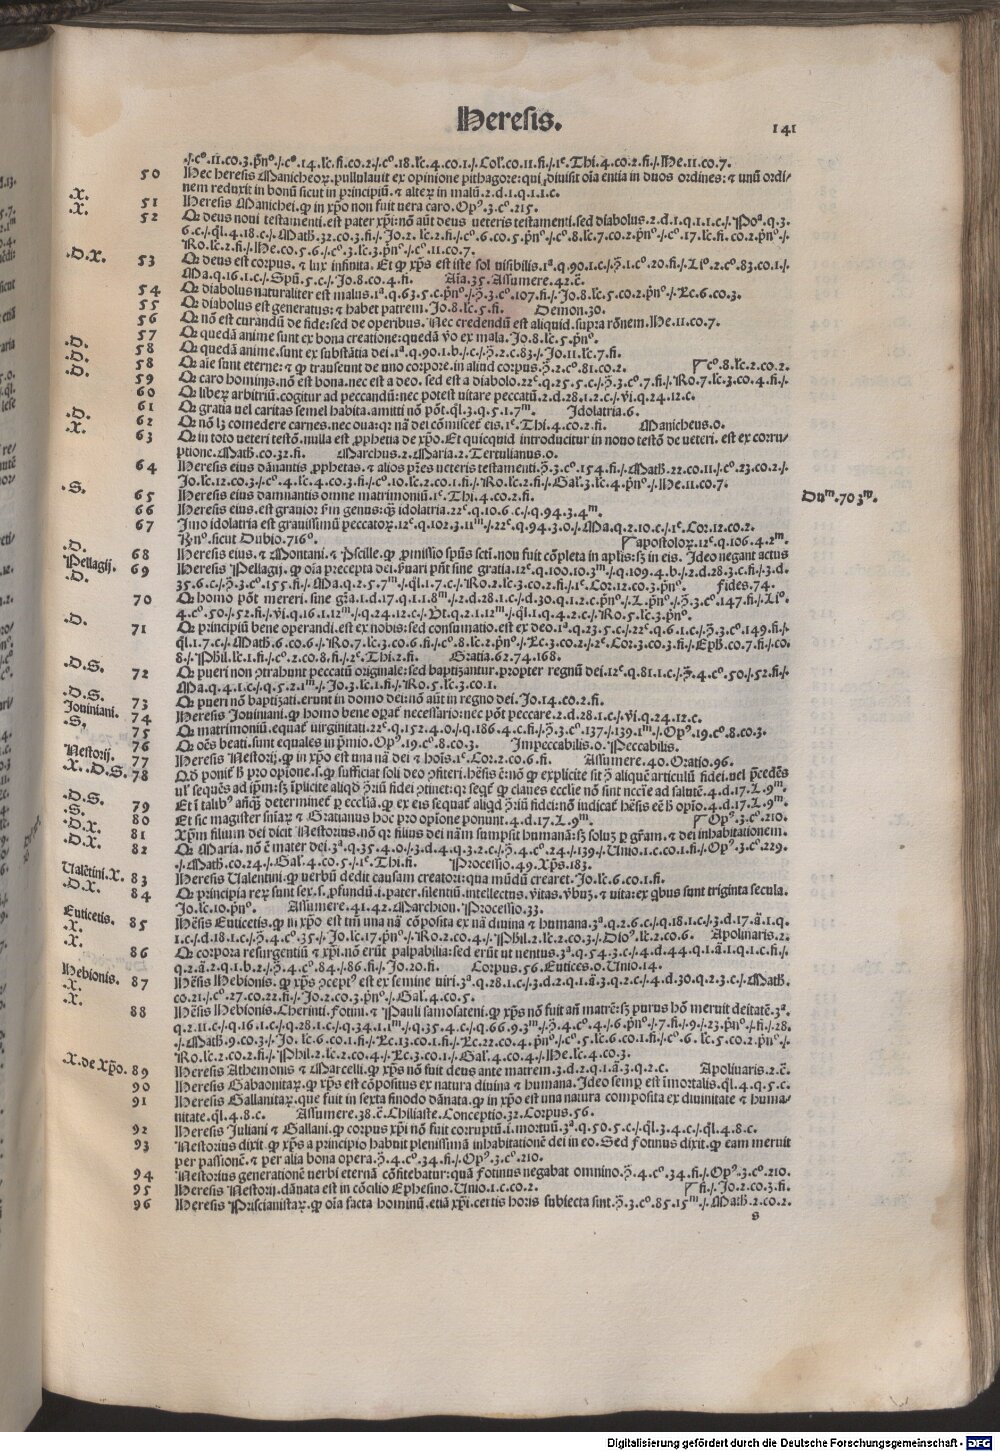 Heresis.
141
./.cº.11.co.3.p̃nº./.cº.14.lc̃.fi.co.2./.cº.18.lc̃.4.co.1./.Col̃.co.11.fi./.1ᶜ.Thi.4.co.2.fi./.He.11.co.7.
50 Hec heresis Manicheoꝝ.pullulauit ex opinione pithagore:qui diuisit oĩa entia in duos ordines:⁊ unũ ordi/
nem reduxit in bonũ sicut in principiũ.⁊ alteꝝ in malũ.2.d.1.q.1.1.c.
.X. 51 Heresis Manichei.ꝙ in xp̃o non fuit vera caro.Opꝰ.3.cº.215.
.X. 52 Q̃ deus noui testamenti.est pater xp̃i:nõ aũt deus veteris testamenti.sed diabolus.2.d.1.q.1.1.c./.Poᵃ.q.3.
6.c./.ql̃.4.18.c./.Math̃.32.co.3.fi./.Jo.2.lc̃.2.fi./.cº.6.co.5.p̃nº./.cº.8.lc̃.7.co.2.p̃nº./.cº.17.lc̃.fi.co.2.p̃nº./.
Ro.lc̃.2.fi./.He.co.5.6./.cº.3.lc̃.3.p̃nº./.cº.11.co.7.
.D.X. 53 Q̃ deus est corpus.⁊ lux infinita. Et ꝙ xp̃s est iste sol visibilis.1ᵃ.q.90.1.c./.ꝯ̃.1.cº.20.fi./.Liº.2.cº.83.co.1./.
Ma.q.16.1.c./.Spũ.5.c./.Jo.8.co.4.fi. Aĩa.35.Assumere.42.c̃.
54 Q̃ diabolus naturaliter est malus.1ᵃ.q.63.5.c.p̃nº./.ꝯ̃.3.cº.107.fi./.Jo.8.lc̃.5.co.2.p̃nº./.Ec.6.co.3.
55 Q̃ diabolus est generatus:⁊ habet patrem.Jo.8.lc̃.5.fi. Demon.30.
56 Q̃ nõ est curandũ de fide:sed de operibus. Nec credendũ est aliquid.supra rõnem.He.11.co.7.
57 Q̃ quedã anime sunt ex bona creatione:quedã ṽo ex mala.Jo.8.lc̃.5.p̃nº.
.D. 58 Q̃ quedã anime.sunt ex substãtia dei.1ᵃ.q.90.1.b./.c./.ꝯ̃.2.c.83./.Jo.11.lc̃.7.fi.
.D. 58 Q̃ aĩe sunt eterne:⁊ ꝙ transeunt de uno corpore.in aliud corpus.ꝯ̃.2.cº.81.co.2. cº.8.lc̃.2.co.2.
.D. 59 Q̃ caro hominis.nõ est bona.nec est a deo. sed est a diabolo.22ᶜ.q.25.5.c./.ꝯ̃.3.cº.7.fi./.Ro.7.lc̃.3.co.4.fi./.
60 Q̃ libeꝝ arbitriũ.cogitur ad peccandũ:nec potest vitare peccatũ.2.d.28.1.2.c./.vi.q.24.12.c.
61 Q̃ gratia vel caritas semel habita.amitti nõ põt.ql̃.3.q.5.1.7ᵐ. Idolatria.6.
.D. 62 Q̃ nõ lꝫ comedere carnes.nec oua:q: nã dei cõmiscet̃ eis.1ᶜ.Thi.4.co.2.fi. Manicheus.0.
.X. 63 Q̃ in toto veteri testõ.nulla est ꝓphetia de xp̃o.Et quicquid introducitur in nouo testõ de veteri. est ex corru/
ptione.Math̃.co.32.fi. Marchus.2.Maria.2.Tertulianus.0.
64 Heresis eius dãnantis ꝓphetas.⁊ alios p̃res veteris testamenti.ꝯ̃.3.cº.154.fi./.Math̃.22.co.11./.cº.23.co.2./.
Jo.lc̃.12.co.3./.cº.4.lc̃.4.co.3.fi./.cº.10.lc̃.2.co.1.fi./.Ro.lc̃.2.fi./.Gal̃.3.lc̃.4.p̃nº./.He.11.co.7.
.S. 65 Heresis eius damnantis omne matrimoniũ.1ᶜ.Thi.4.co.2.fi. Duᵐ.703ᵐ.
66 Heresis eius.est grauior ẜm genus:q̃ꝫ idolatria.22ᶜ.q.10.6.c./.q.94.3.4ᵐ.
67 Imo idolatria est grauissimũ peccatoꝝ.12ᶜ.q.102.3.11ᵐ./.22ᶜ.q.94.3.0./.Ma.q.2.10.c./.1ᶜ.Cor.12.co.2.
Rñº.sicut Dubio.716º. apostoloꝝ.12ᶜ.q.106.4.2ᵐ.
.D. 68 Heresis eius.⁊ Montani.⁊ P̃scille.ꝙ ꝓmissio sp̃us sctĩ.non fuit cõpleta in aplis:sꝫ in eis. Ideo negant actus
Pellagij. 69 Heresis Pellagij.ꝙ oĩa precepta dei.ẜuari pñt sine gratia.12ᶜ.q.100.10.3ᵐ./.q.109.4.b./.2.d.28.3.c.fi./.3.d.
.D. 35.6.c./.ꝯ̃.3.cº.155.fi./.Ma.q.2.5.7ᵐ./.ql̃.1.7.c./.Ro.2.lc̃.3.co.2.fi./.1ᶜ.Cor.12.co.3.p̃nº. fides.74.
70 Q̃ homo põt mereri.sine gr̃a.1.d.17.q.1.1.8ᵐ./.2.d.28.1.c./.d.30.q.1.2.c.p̃nº./.L.p̃nº./.ꝯ̃.3.cº.147.fi./.Liº.
4.cº.50./.52.fi./.vi.q.16.1.12ᵐ./.q.24.12.c./.Vt.q.2.1.12ᵐ./.ql̃.1.q.4.2.c./.Ro.5.lc̃.3.p̃nº.
.D. 71 Q̃ principiũ bene operandi.est ex nobis:sed consumatio.est ex deo.1ᵃ.q.23.5.c./.22ᶜ.q.6.1.c./.ꝯ̃.3.cº.149.fi./.
ql̃.1.7.c./.Math̃.6.co.6./.Ro.7.lc̃.3.co.6.fi./.cº.8.lc̃.2.p̃nº./.Ec.3.co.2./.2ᶜ.Cor.3.co.3.fi./.Eph̃.co.7.fi./.co.
8./.Phil̃.lc̃.1.fi./.cº.2.co.8.fi./.2ᶜ.Thi.2.fi. Gratia.62.74.168.
.D.S. 72 Q̃ pueri non ꝯtrahunt peccatũ originale:sed baptizantur.ꝓpter regnũ dei.12ᶜ.q.81.1.c./.ꝯ̃.4.cº.50./.52.fi./.
Ma.q.4.1.c./.q.5.2.1ᵐ./.Jo.3.lc̃.1.fi./.Ro.5.lc̃.3.co.1.
.D.S. 73 Q̃ pueri nõ baptizati.erunt in domo dei:nõ aũt in regno dei.Jo.14.co.2.fi.
Jouiniani. 74 Heresis Jouiniani.ꝙ homo bene oꝑat̃ necessario:nec põt peccare.2.d.28.1.c./.vi.q.24.12.c.
.S. 75 Q̃ matrimoniũ.equat̃ virginitati.22ᶜ.q.152.4.0./.q.186.4.c.fi./.ꝯ̃.3.cº.137./.139.1ᵐ./.Opꝰ.19.cº.8.co.3.
76 Q̃ oẽs beati.sunt equales in p̃mio.Opꝰ.19.cº.8.co.3. Impeccabilis.0.Peccabilis.
Nestorij. 77 Heresis Nestorij.ꝙ in xp̃o est una nã dei ⁊ hoĩs.1ᶜ.Cor.2.co.6.fi. Assumere.40.Oratio.96.
.X..D.S. 78 Q̃ð ponit̃ ħ pro opione.s.ꝙ sufficiat soli deo ꝯfiteri.hẽsis ẽ:nõ ꝙ explicite sit ꝯ̃ aliquẽ articulũ fidei.vel p̃cedẽs
vl̃ sequẽs ad ip̃m:sꝫ ĩplicite aliqd ꝯ̃riũ fidei ꝯtinet:qꝛ seqt̃ ꝙ claues ecclie nõ sint necc̃e ad salutẽ.4.d.17.L.9ᵐ.
.D.S. 79 Et ĩ talibꝰ añq̃ꝫ determinet̃ ꝑ eccliã.ꝙ ex eis sequat̃ aliqd ꝯ̃riũ fidei:nõ indicat̃ hẽsis ẽe ħ opio.4.d.17.L.9ᵐ.
.S. 80 Et sic magister sniaꝝ ⁊ Gratianus hoc pro opione ponunt.4.d.17.L.9ᵐ. Opꝰ.3.cº.210.
.D.X. 81 Xp̃m filium dei dicit Nestorius.nõ q: filius dei nãm sumpsit humanã:sꝫ soluꝫ ꝑ gr̃am.⁊ dei inhabitationem.
.D.X. 82 Q̃ Maria.nõ ẽ mater dei.3ᵃ.q.35.4.0./.3.d.4.q.3.2.c./.ꝯ̃.4.cº.24./.139./.Unio.1.c.co.1.fi./.Opꝰ.3.cº.229.
./.Math̃.co.24./.Gal̃.4.co.5./.1ᶜ.Thi.fi. Processio.49.Xp̃s.183.
Valẽtini.X. 83 Heresis Valentini.ꝙ verbũ dedit causam creatori:qua mũdũ crearet.Jo.lc̃.6.co.1.fi.
.D.X. 84 Q̃ principia reꝝ sunt sex.s.ꝓfundũ.i.pater.silentiũ.intellectus.ṽitas.ṽbuꝫ.⁊ vita:ex qbus sunt triginta secula.
Jo.lc̃.10.p̃nº. Assumere.41.42.Marchion.Processio.33.
Euticetis. 85 Hẽsis Euticetis.ꝙ in xp̃o est tm̃ una nã cõposita ex nã diuina ⁊ humana.3ᵃ.q.2.6.c./.q.18.1.c./.3.d.17.ã.1.q.
.X. 1.c./.d.18.1.c./.ꝯ̃.4.cº.35./.Jo.lc̃.17.p̃nº./.Ro.2.co.4./.Phil̃.2.lc̃.2.co.3./.Dioꝰ.lc̃.2.co.6. Apolinaris.2.
.X. 86 Q̃ corpora resurgentiũ ⁊ xp̃i.nõ erũt palpabilia:sed erũt ut uentus.3ᵃ.q.54.3.c./.4.d.44.q.1.ã.1.q.1.c.fi./.
q.2.ã.2.q.1.b.2./.ꝯ̃.4.cº.84./.86.fi./.Jo.20.fi. Corpus.56.Eutices.0.Unio.14.
Hebionis. 87 Hẽsis Hebionis.ꝙ xp̃s ꝯcept̃ꝰ est ex semine viri.3ᵃ.q.28.1.c./.3.d.2.q.1.ã.3.q.2.c./.4.d.30.q.2.3.c./.Math̃.
.X. co.21./.cº.27.co.22.fi./.Jo.2.co.3.p̃nº./.Gal̃.4.co.5.
.X. 88 Hẽsis Hebionis.Cherinti.fotini.⁊ Pauli samosateni.ꝙ xp̃s nõ fuit añ matrẽ:sꝫ purus hõ meruit deitatẽ.3ᵃ.
q.2.11.c./.q.16.1.c./.q.28.1.c./.q.34.1.1ᵐ./.q.35.4.c./.q.66.9.3ᵐ./.ꝯ̃.4.cº.4./.6.p̃nº./.7.fi./.9./.23.p̃nº./.fi./.28.
./.Math̃.9.co.3./.Jo.lc̃.6.co.1.fi./.Ec.13.co.1.fi./.Ec.22.co.4.p̃nº./.cº.5.lc̃.6.co.1.fi./.cº.6.lc̃.5.co.2.p̃nº./.
Ro.lc̃.2.co.2.fi./.Phil̃.2.lc̃.2.co.4./.Ec.3.co.1./.Gal̃.4.co.4./.He.lc̃.4.co.3.
.X.de xp̃o. 89 Heresis Athemonis ⁊ Marcelli.ꝙ xp̃s nõ fuit deus ante matrem.3.d.2.q.1.ã.3.q.2.c. Apolinaris.2.c̃.
90 Heresis Gabaonitaꝝ.ꝙ xp̃s est cõpositus ex natura diuina ⁊ humana.Ideo semp est ĩmortalis.ql̃.4.q.5.c.
91 Heresis Gallanitaꝝ.que fuit in sexta sinodo dãnata.ꝙ in xp̃o est una natura composita ex diuinitate ⁊ huma/
nitate.ql̃.4.8.c. Assumere.38.c̃.Chiliaste.Conceptio.32.Corpus.56.
92 Heresis Juliani ⁊ Gallani.ꝙ corpus xp̃i nõ fuit corruptũ.i.mortuũ.3ᵃ.q.50.5.c./.ql̃.3.4.c./.ql̃.4.8.c.
93 Nestorius dixit.ꝙ xp̃s a principio habuit plenissimã inhabitationẽ dei in eo.Sed fotinus dixit.ꝙ eam meruit
per passionẽ.⁊ per alia bona opera.ꝯ̃.4.cº.34.fi./.Opꝰ.3.cº.210.
94 Nestorius generationẽ verbi eternã cõfitebatur:quã fotinus negabat omnino.ꝯ̃.4.cº.34.fi./.Opꝰ.3.cº.210.
95 Heresis Nestorij.dãnata est in cõcilio Ephesino.Unio.1.c.co.2. fi./.Jo.2.co.3.fi.
96 Heresis Priscianistaꝝ.ꝙ oĩa facta hominũ.etiã xp̃i.certis horis subiecta sint.ꝯ̃.3.cº.85.15ᵐ./.Math̃.2.co.2.
s
Digitalisierung gefördert durch die Deutsche Forschungsgemeinschaft - DFG